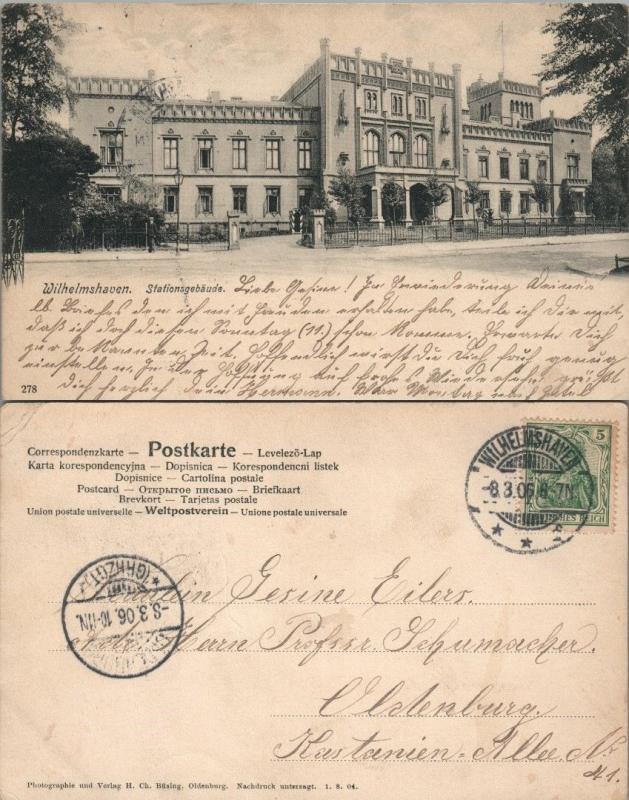 Wilhelmshaven. Stationsgebäude. Liebe Gesine! In Erwiderung Deines
lb. Briefes den ich mit Freuden erhalten habe, teile ich Dir mit,
daß ich doch diesen Sonntag (11.) schon komme. Erwarte Dich
zur bekannten Zeit. Hoffentlich wirst du Dich früh genug
einstellen. In der Hoffnung auf frohes Wiedersehen grüßt
Dich herzlich dein Hermann. War Montag
278
Correspondenzkarte — Postkarte — Levelező-Lap
Karta korespondencyjna — Dopisnica — Korespondencni listek
Dopisnice — Cartolina postale
Postcard — Открытое письмо — Briefkaart
Brevkort — Tarjetas postale
Union postale universelle — Weltpostverein — Unione postale universale
WILHELMSHAVEN
-8.3.06.8-7N.
5
REICH
-8.3.06.10-11N.
Fräulein Gesine Eilers.
Adr. Herrn Profssr. Schumacher.
Oldenburg.
Kastanien-Allee Nr
41.
Photographie und Verlag H. Ch. Büsing, Oldenburg. Nachdruck untersagt. 1. 8. 04.